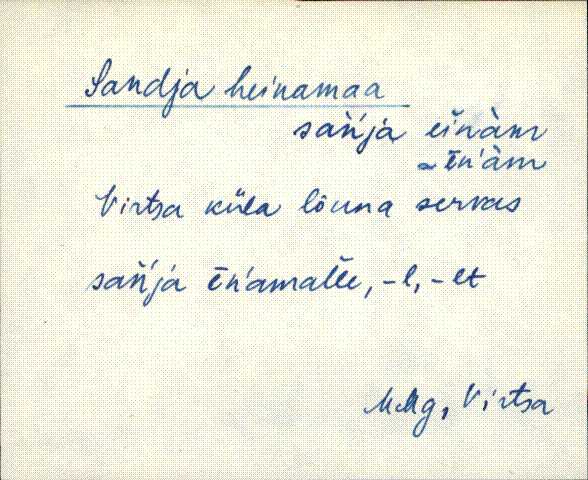 Sandja heinamaa
sań̀ja eìnàm
~ īn'àm
Virtsa küla lõuna servas
sań̀ja īn'amalle, -l, -lt
MMg, Virtsa